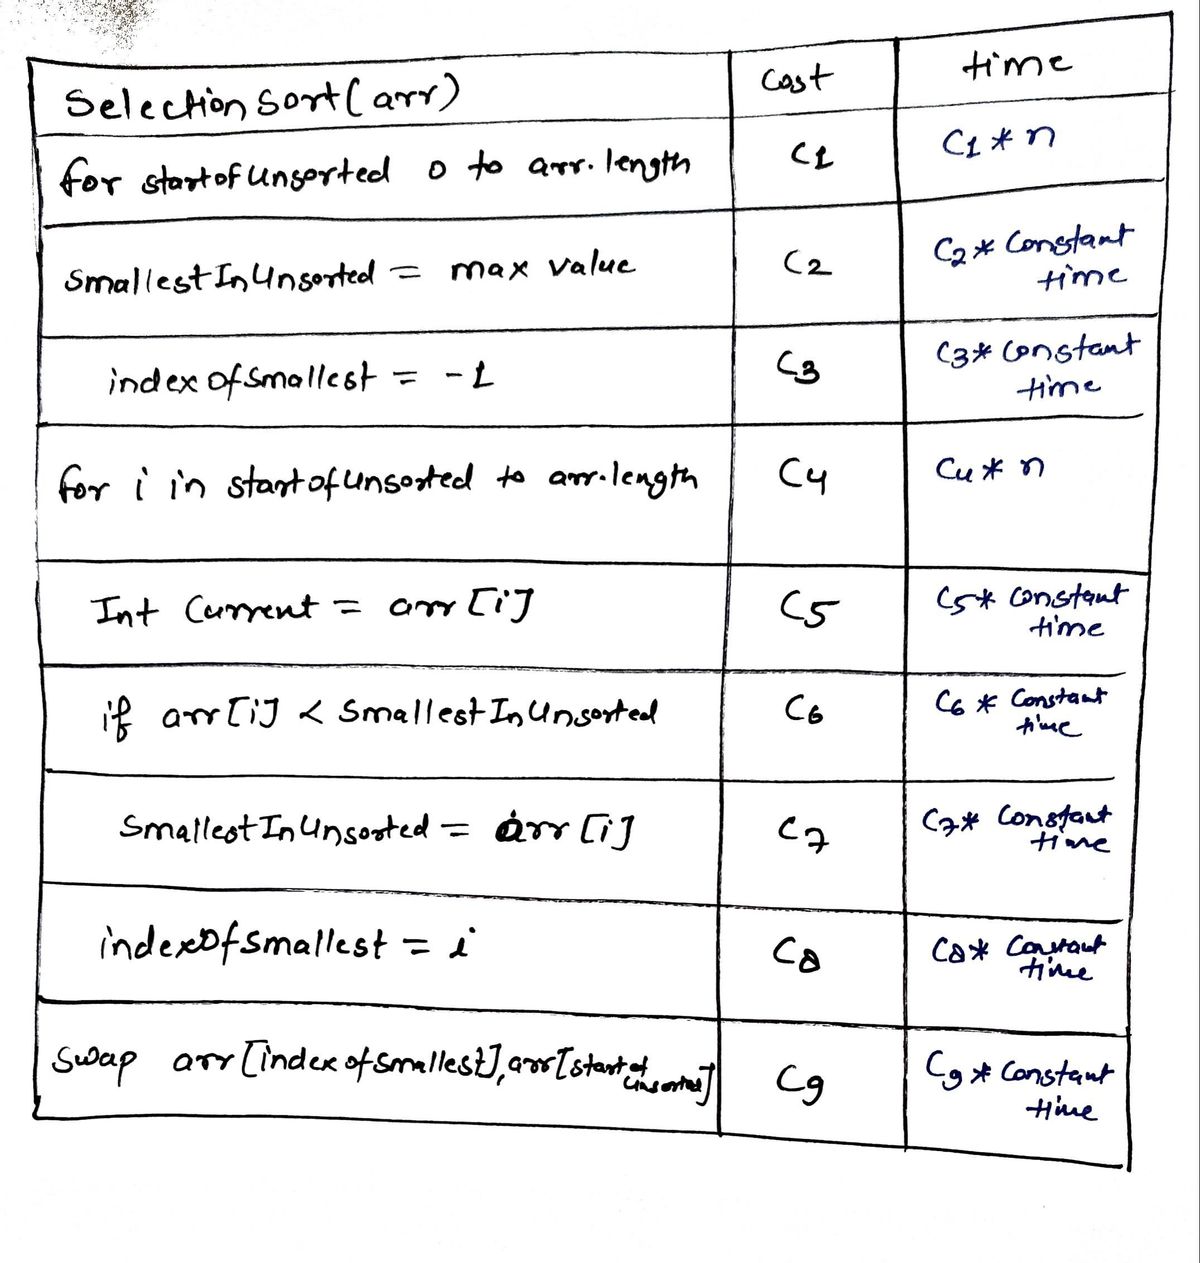 Selection Sort(arr) Cost time
for startofUnsorted 0 to arr.length C1 C1 * n
SmallestInUnsorted = max value C2 C2 * Constant
time
index ofSmallest = -1 C3 C3 * Constant
time
for i in startofUnsorted to arr.length C4 C4 * n
Int Current = arr[i] C5 C5 * Constant
time
if arr[i] < SmallestInUnsorted C6 C6 * Constant
time
SmallestInUnsorted = arr[i] C7 C7 * Constant
time
indexOfSmallest = i C8 C8 * Constant
time
Swap arr[index ofSmallest], arr[startof C9 C9 * Constant
Unsorted] time